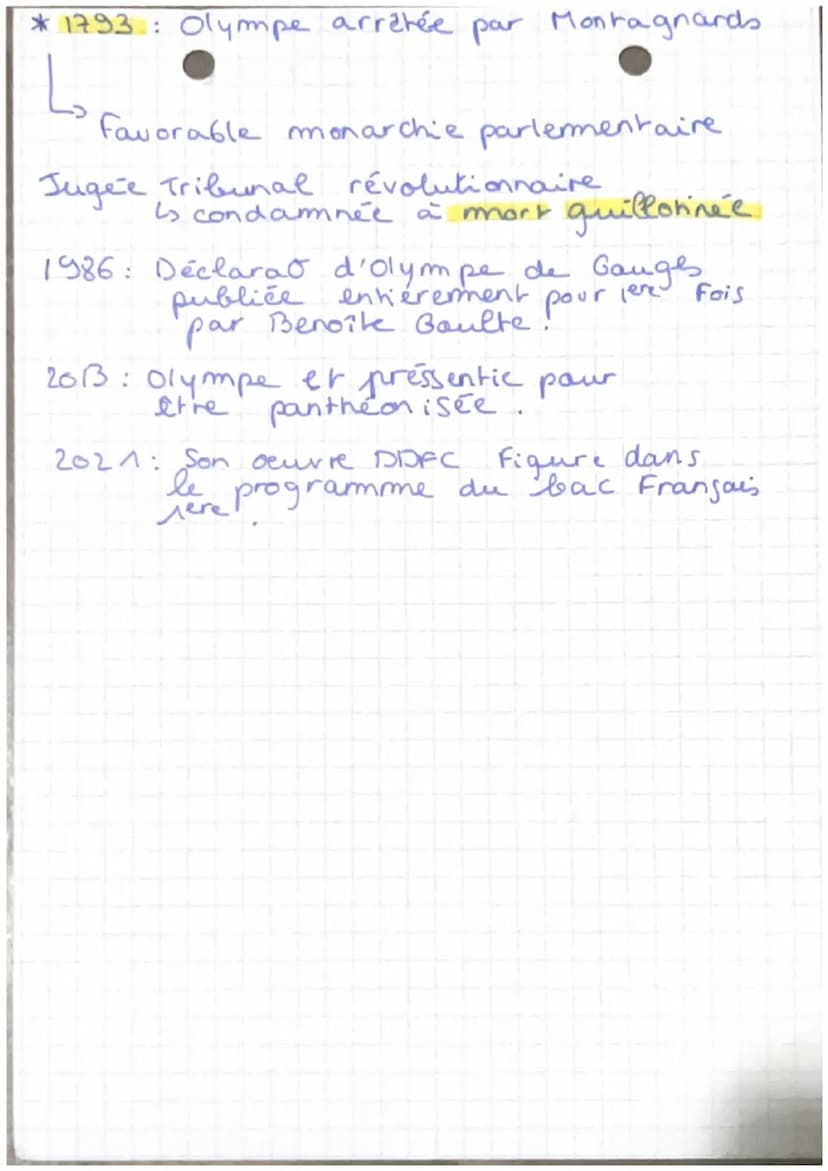 * 1793 : Olympe arrêtée par Montagnards
↳ Favorable monarchie parlementaire
Jugée Tribunal révolutionnaire
↳ condamnée à mort guillotinée
1986 : Déclarað d'Olympe de Gouges
publiée entièrement pour 1ère Fois
par Benoîte Goulte.
2013 : Olympe et préssentie pour
être panthéonisée.
2021 : Son oeuvre DDFC Figure dans
le programme du bac Français
1ère.